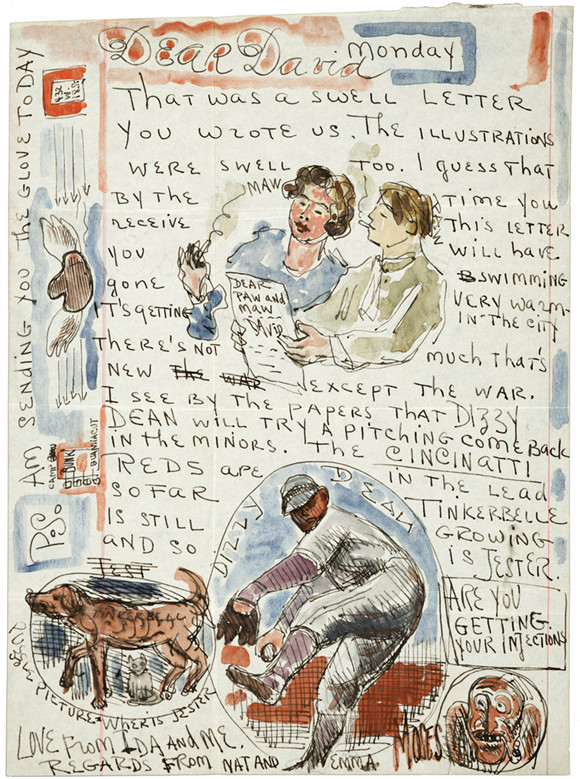 Dear David
Monday
THAT WAS A SWELL LETTER
YOU WROTE US. THE ILLUSTRATIONS
WERE SWELL TOO. I GUESS THAT
BY THE TIME YOU
RECEIVE THIS LETTER
YOU WILL HAVE
GONE SWIMMING
IT'S GETTING VERY WARM
IN THE CITY
THERE'S NOT MUCH THAT'S
NEW THE WAR EXCEPT THE WAR.
I SEE BY THE PAPERS THAT DIZZY
DEAN WILL TRY A PITCHING COME BACK
IN THE MINORS. THE CINCINATTI
REDS ARE IN THE LEAD
SO FAR TINKERBELLE
IS STILL GROWING
AND SO IS JESTER.
MAW
DEAR
PAW AND
MAW
DAVID
DIZZY DEAN
ARE YOU
GETTING
YOUR INJECTIONS
JEST
TINKERBELLE
PUZZLE PICTURE WHERE IS JESTER
LOVE FROM IDA AND ME.
REGARDS FROM NAT AND EMMA
MOSES
P.S.
AM SENDING YOU THE GLOVE TODAY
432
W.
CAMP